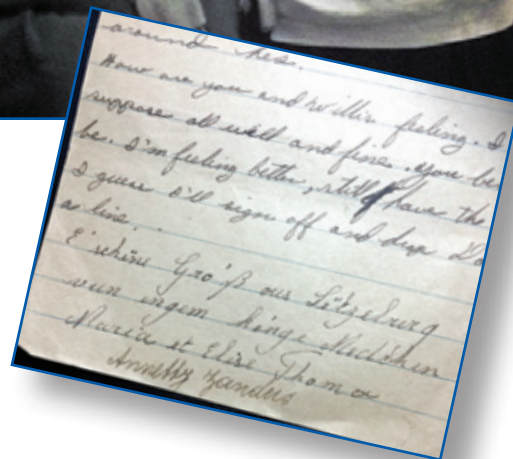 around her.
How are you and Willie feeling. I
suppose all well and fine. You be
be. I'm feeling better, still have the
I guess I'll sign off and drop Da
a line.
E' schéns Gro'ß aus Lëtzeburg
vun
Maria et Elise Thoma
Annetty Zanders